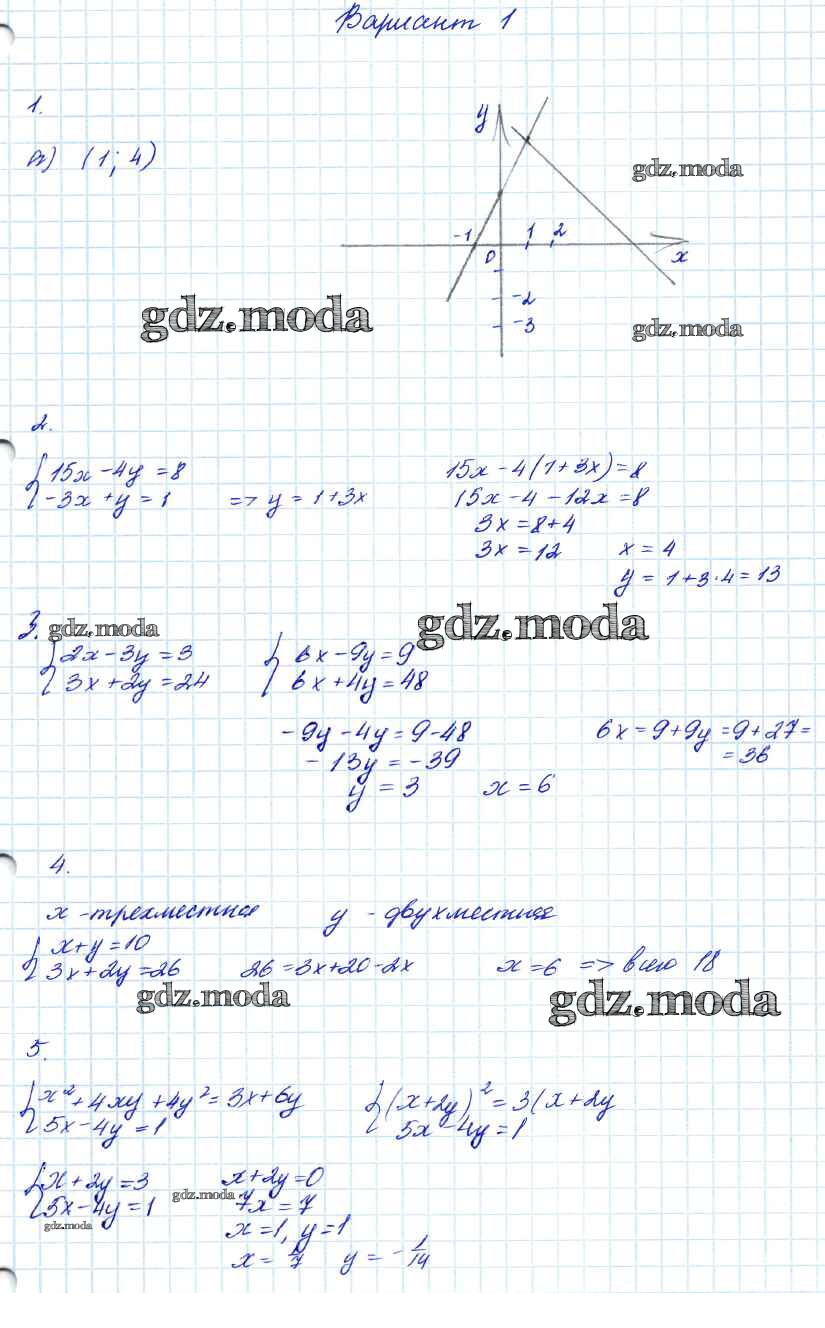 Вариант 1
1.
а) (1; 4)
y
gdz.moda
-1 0 1 2 x
-2
-3
gdz.moda
gdz.moda
2.
{ 15x - 4y = 8
-3x + y = 1 => y = 1 + 3x
15x - 4(1 + 3x) = 8
15x - 4 - 12x = 8
3x = 8 + 4
3x = 12 x = 4
y = 1 + 3 · 4 = 13
3. gdz.moda
gdz.moda
{ 2x - 3y = 3
3x + 2y = 24
{ 6x - 9y = 9
6x + 4y = 48
-9y - 4y = 9 - 48
-13y = -39
y = 3 x = 6
6x = 9 + 9y = 9 + 27 =
= 36
4.
x - трехместная y - двухместная
{ x + y = 10
3x + 2y = 26 26 = 3x + 20 - 2x x = 6 => всего 18
gdz.moda
gdz.moda
5.
{ x² + 4xy + 4y² = 3x + 6y
5x - 4y = 1
{ (x + 2y)² = 3(x + 2y
5x - 4y = 1
{ x + 2y = 3
5x - 4y = 1
gdz.moda
gdz.moda
x + 2y = 0
7x = 7
x = 1, y = 1
y = -1/14